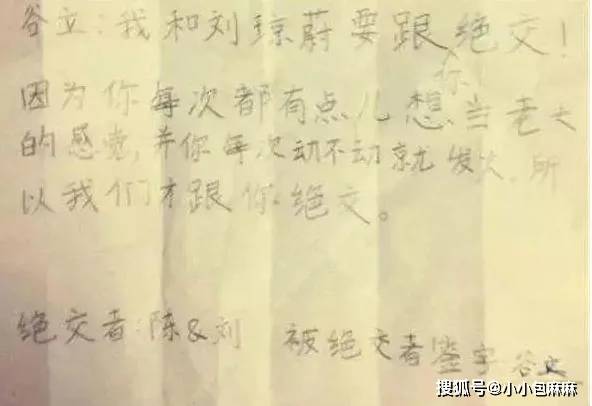 谷立：我和刘琼蔚要跟你绝交！
因为你每次都有点儿想当老大
的感觉，并你每次动不动就发火，所
以我们才跟你绝交。
绝交者：陈&刘 被绝交者签字 谷立
搜狐号@小小包麻麻